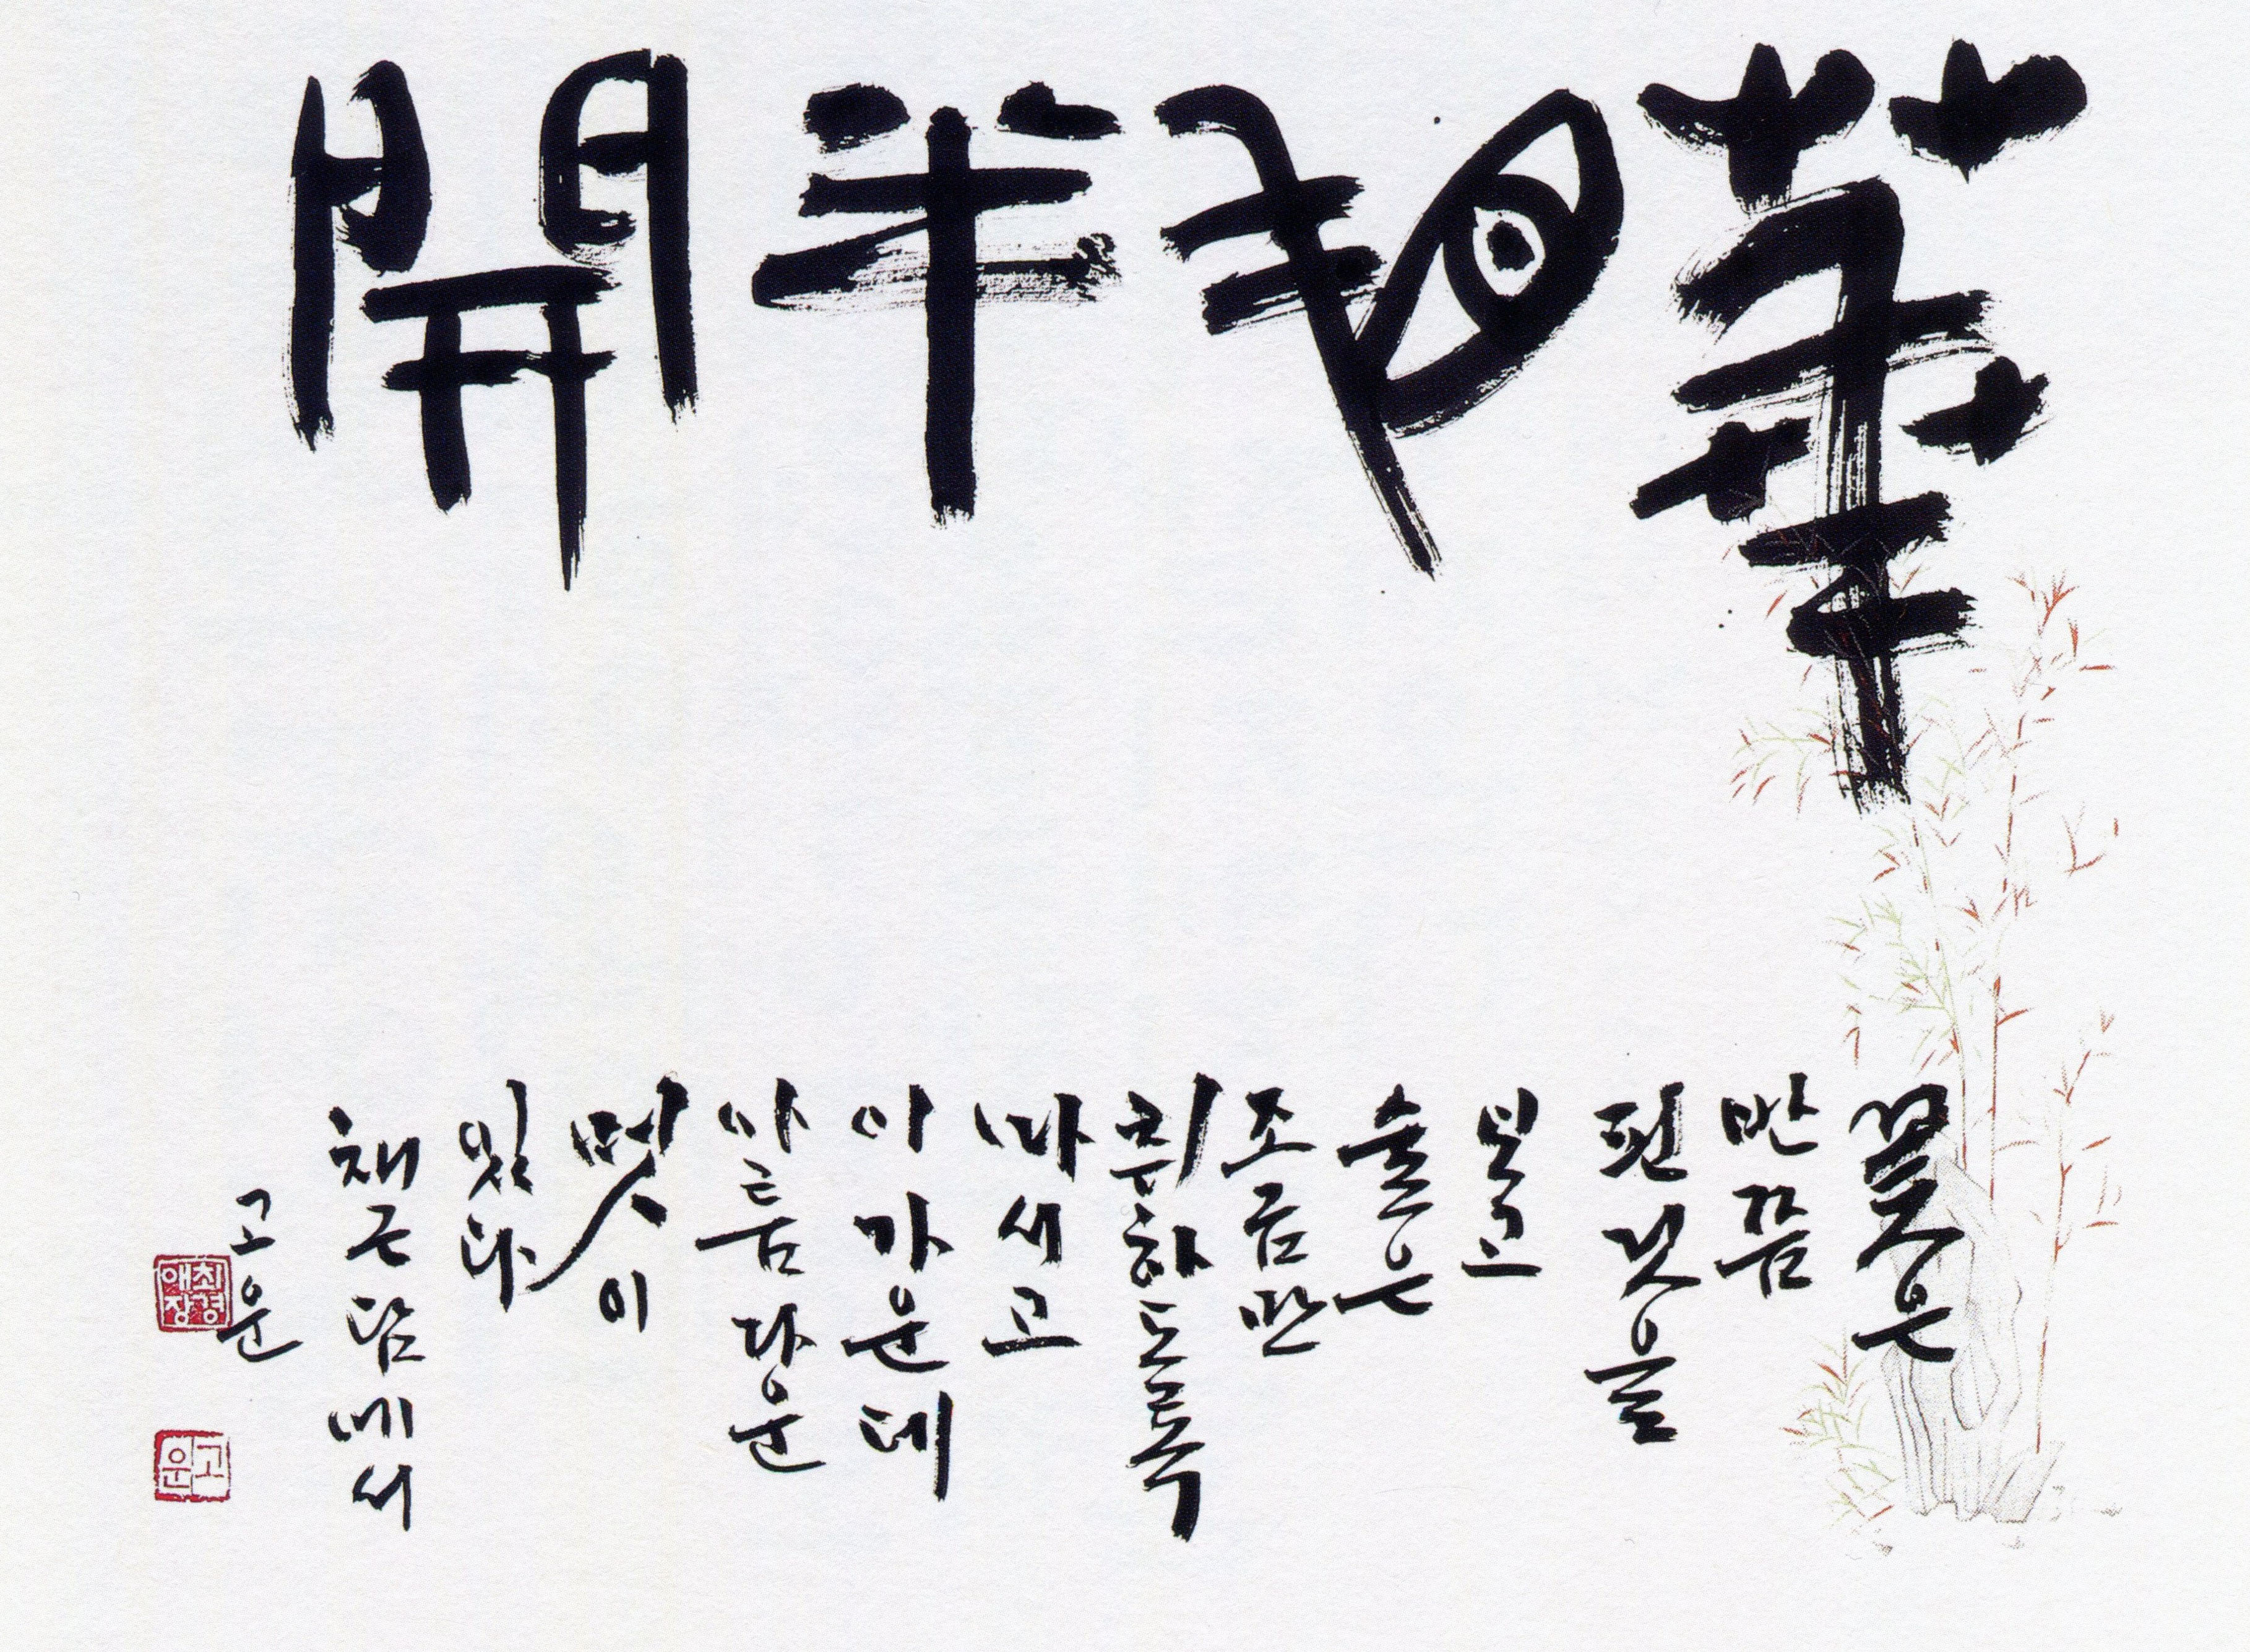 華看半開
꽃은
반쯤
핀것을
보고
술은
조금만
취하도록
마시고
이가운데
아름다운
멋이
있다
채근담에서
고운
최경애장
고운